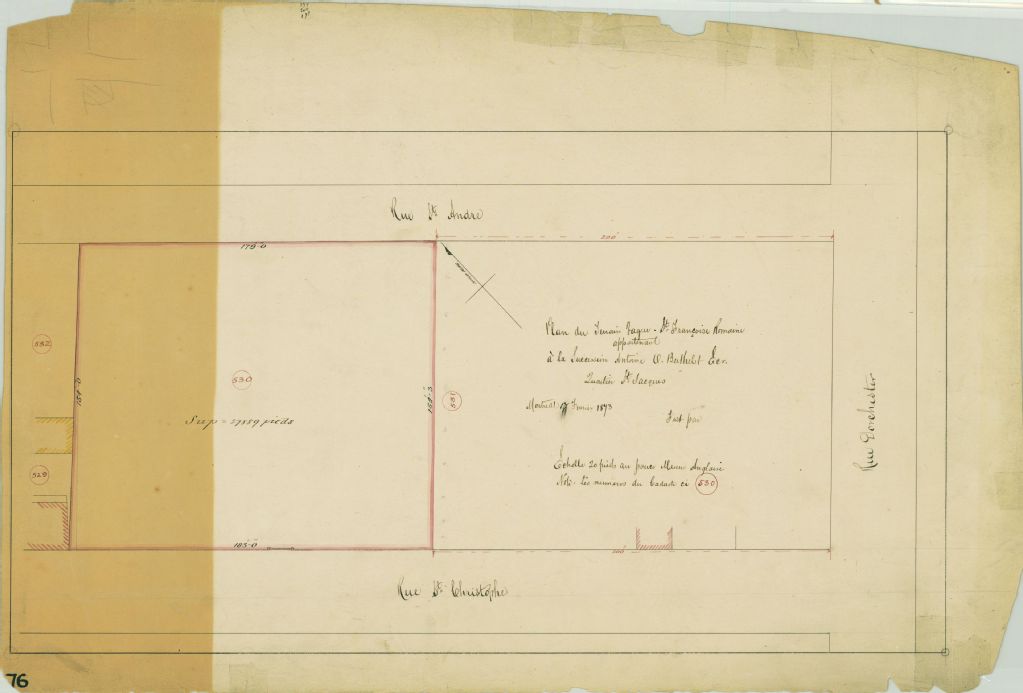 Rue St. Andre
200'
178-0
532
530
154-0
154-3
531
529
Sup = 27859 pieds
Plan du Terrain Vague - St. Françoise Romaine
appartenant
à la Succession Antoine O. Berthelet Ecr.
Quartier St. Jacques
Montreal 17 Fevrier 1873
Fait par
Echelle 20 pieds au pouce Mesure Anglaise
Note. les numeros du Cadastre ci 530
Rue Dorchester
183-0
200'
Rue St. Christophe
76